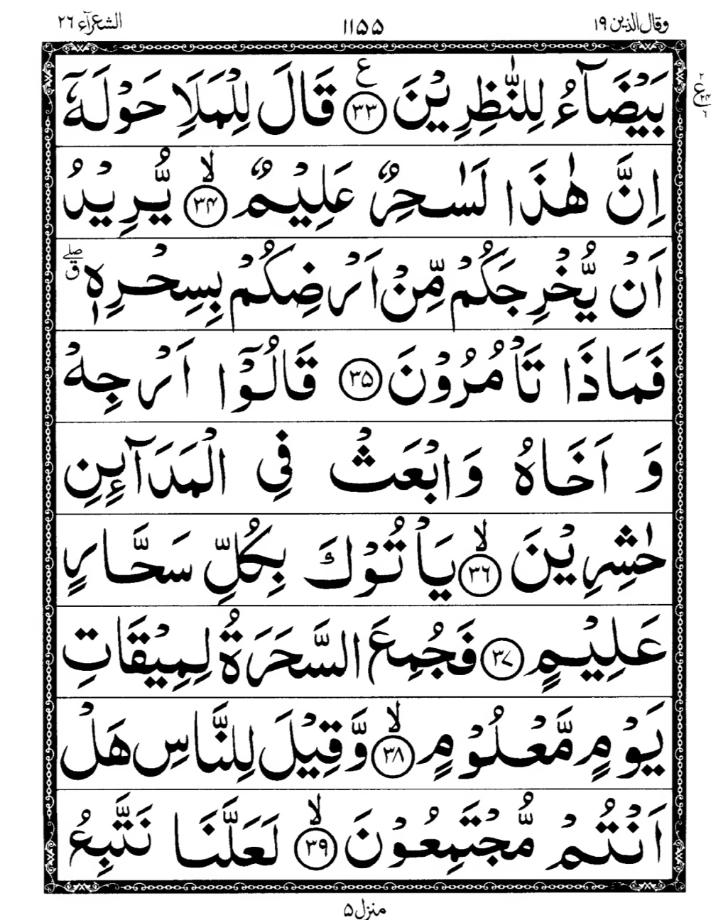 وقال الذین ۱۹ ۱۱۵۵ الشعرآء ۲۶
بَیْضَآءُ لِلنّٰظِرِیْنَ ﴿۳۳﴾ ع قَالَ لِلْمَلَاِ حَوْلَهٗۤ
اِنَّ هٰذَا لَسٰحِرٌ عَلِیْمٌ ﴿۳۴﴾ ۙ یُّرِیْدُ
اَنْ یُّخْرِجَكُمْ مِّنْ اَرْضِكُمْ بِسِحْرِهٖ ۖق
فَمَاذَا تَاْمُرُوْنَ ﴿۳۵﴾ قَالُوْۤا اَرْجِهْ
وَ اَخَاهُ وَابْعَثْ فِی الْمَدَآئِنِ
حٰشِرِیْنَ ﴿۳۶﴾ ۙ یَاْتُوْكَ بِكُلِّ سَحَّارٍ
عَلِیْمٍ ﴿۳۷﴾ فَجُمِعَ السَّحَرَةُ لِمِیْقَاتِ
یَوْمٍ مَّعْلُوْمٍ ﴿۳۸﴾ ۙ وَّقِیْلَ لِلنَّاسِ هَلْ
اَنْتُمْ مُّجْتَمِعُوْنَ ﴿۳۹﴾ ۙ لَعَلَّنَا نَتَّبِعُ
منزل ۵